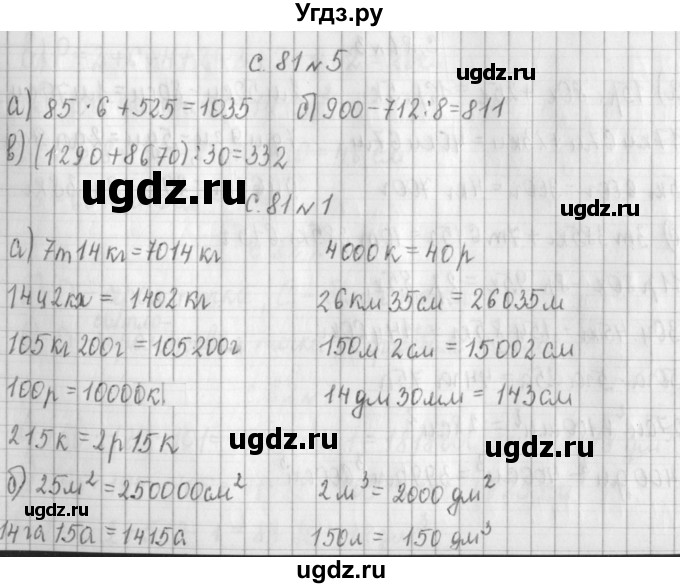 Угдз.ру
с. 81 № 5
а) 85 · 6 + 525 = 1035 б) 900 - 712 : 8 = 811
в) (1290 + 8670) : 30 = 332
с. 81 № 1
а) 7т 14 кг = 7014 кг 4000 к = 40 р
14 ц 2 кг = 1402 кг 26 км 35 см = 26035 м
105 кг 200 г = 105200 г 150 м 2 см = 15002 см
100 р = 10000 к 14 дм 30 мм = 143 см
215 к = 2 р 15 к
б) 25 м² = 250000 см² 2 м³ = 2000 дм²
14 га 15 а = 1415 а 150 л = 150 дм³
ugdz.ru
ugdz.ru
ugdz.ru
ugdz.ru
ugdz.ru
ugdz.ru
ugdz.ru
ugdz.ru
ugdz.ru